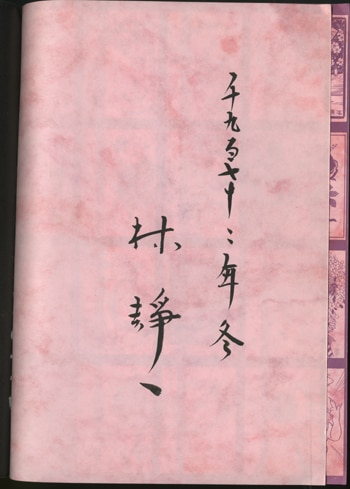 千九百七十二年冬
林靜一